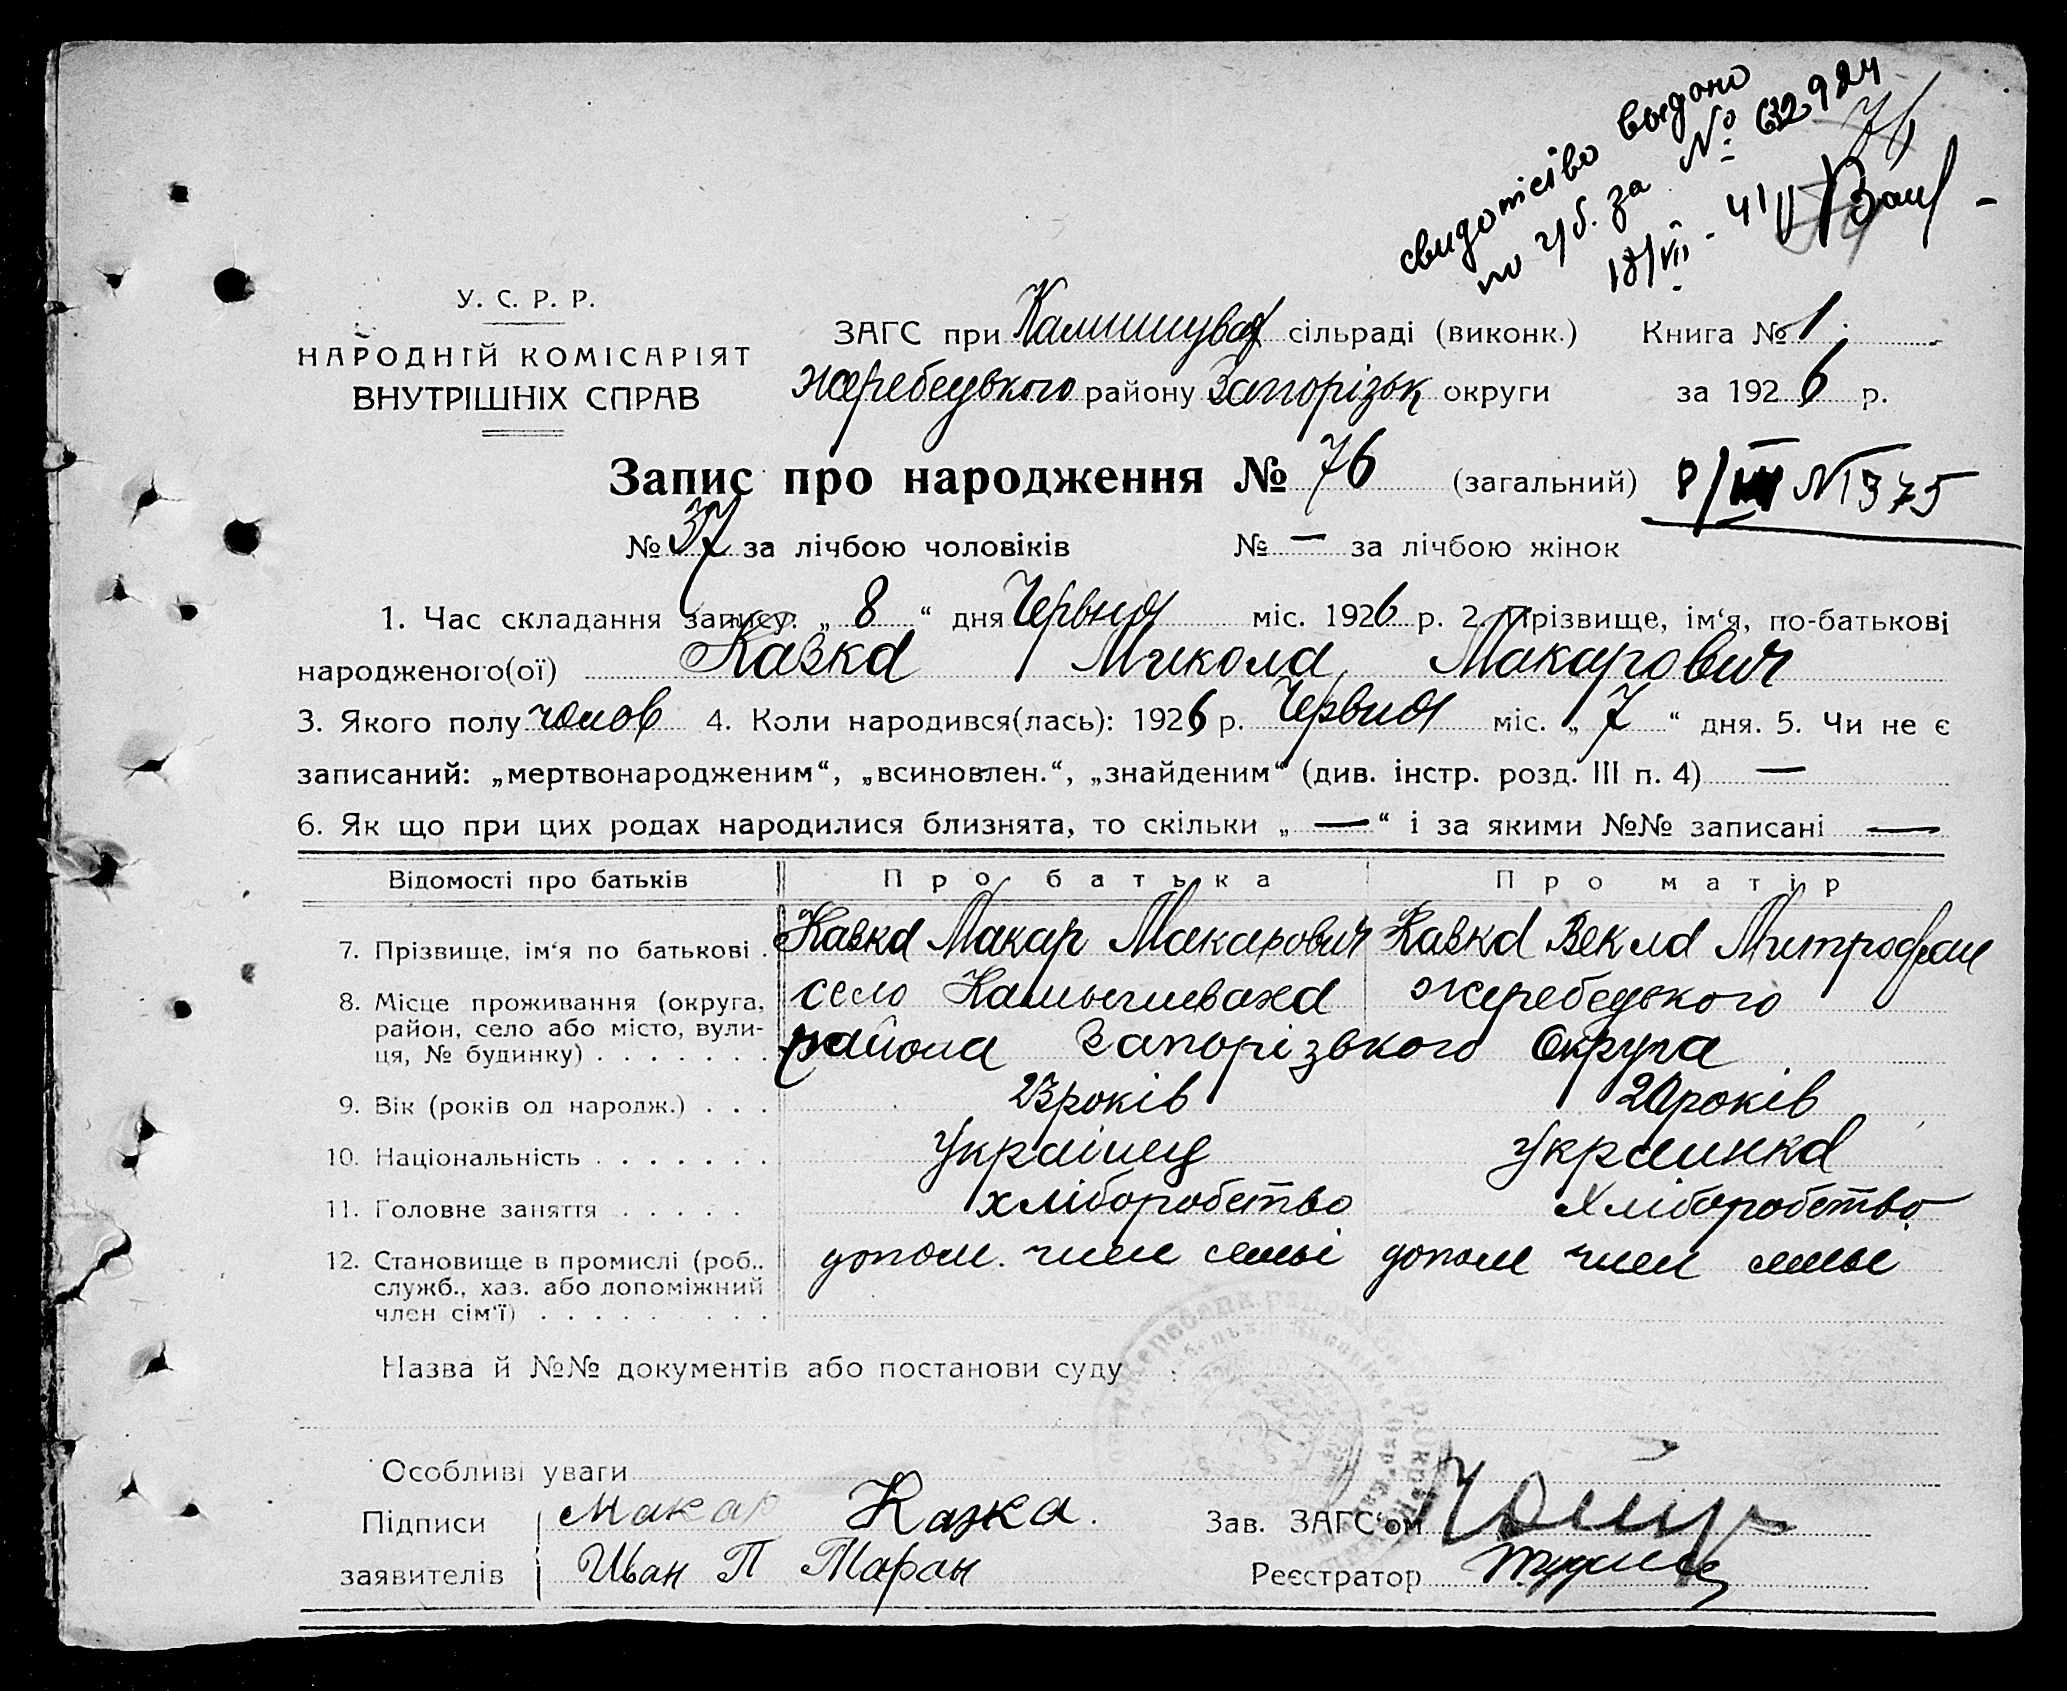 свидотіство выдано
по ч/б. за № 632924
18/VII - 41
76
У. С. Р. Р.
НАРОДНІЙ КОМІСАРІЯТ
ВНУТРІШНІХ СПРАВ
ЗАГС при Камишував сільраді (виконк.) Книга № 1
Жеребецького району Запорізьк округи за 1926 р.
Запис про народження № 76 (загальний) 8/III № 1375
№ 37 за лічбою чоловіків № — за лічбою жінок
1. Час складання запису: „ 8 “ дня Червня міс. 1926 р. 2. Прізвище, ім‘я, по-батькові
народженого(ої) Кавка Микола Макарович
3. Якого полу чолов 4. Коли народився(лась): 1926 р. Червня міс. „ 7 “ дня. 5. Чи не є
записаний: „мертвонародженим“, „всиновлен.“, „знайденим“ (див. інстр. розд. III п. 4) —
6. Як що при цих родах народилися близнята, то скільки „ — “ і за якими №№ записані —
Відомості про батьків Про батька Про матір
7. Прізвище, ім‘я по батькові . Кавка Макар Макарович Кавка Векла Митрофан
8. Місце проживання (округа, село Камышеваха Жеребецького
район, село або місто, вули-
ця, № будинку) . . . . . . . района Запорізького Округа
9. Вік (років од народж.) . . . 23 років 20 років
10. Національність . . . . . . . Українец Украинка
11. Головне заняття . . . . . хліборобство хліборобство
12. Становище в промислі (роб., допом. член семьі допом член семьі
служб., хаз. або допоміжний
член сім‘ї) . . . . . . . . .
Назва й №№ документів або постанови суду
Особливі уваги
Підписи Макар Кавка. Зав. ЗАГС‘ом
заявителів Иван П Таран Реєстратор